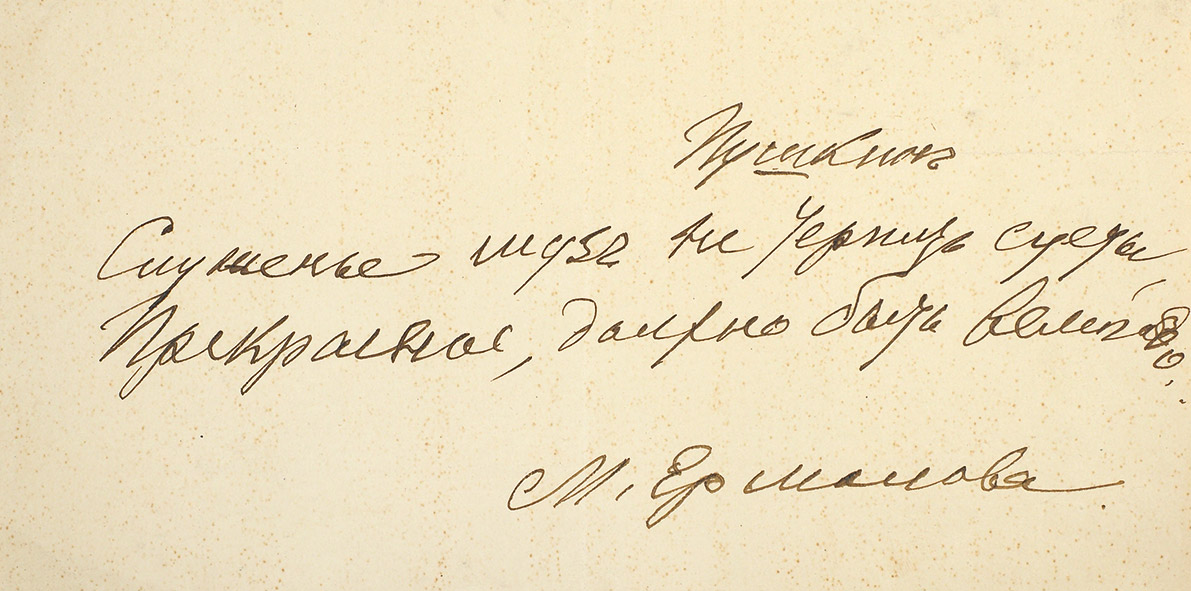 Пушкинъ
Служенье музъ не терпитъ суеты,
Прекрасное, должно быть величаво.
М. Ермолова